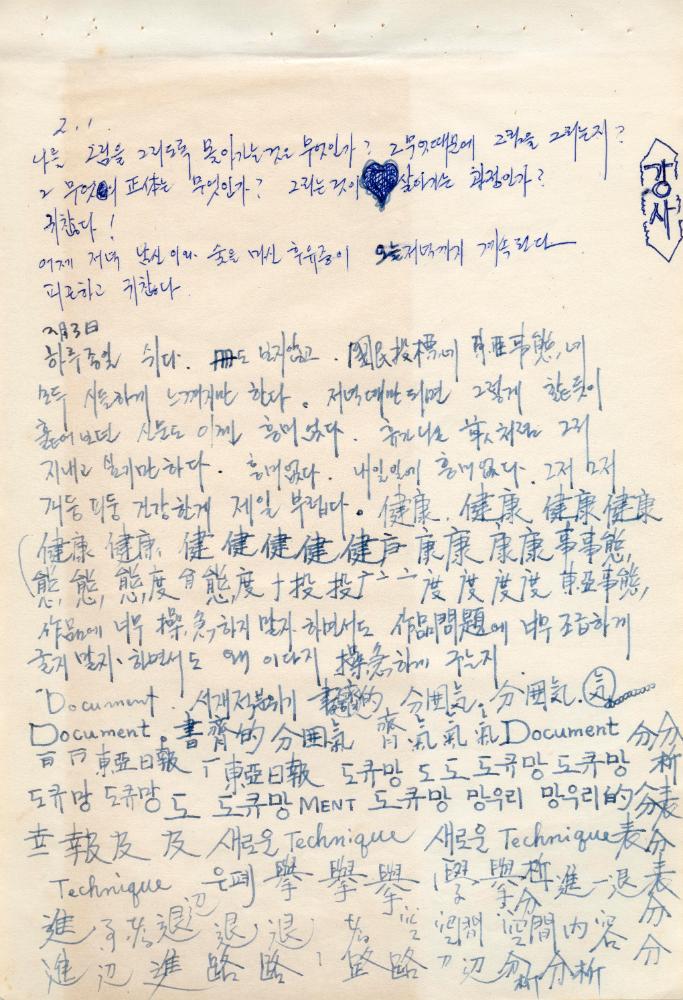 2.1.
나를 그림을 그리도록 몰아가는 것은 무엇인가? 그 무엇 때문에 그림을 그리는지?
그 무엇의 正体는 무엇인가? 그리는 것이 살아가는 과정인가?
귀찮다!
강사
어제 저녁 술을 마신 후유증이 오늘 저녁까지 계속된다
피로하고 귀찮다
2月3日
하루종일 쉬다. 冊도 보지않고. 國民投標니 東亞事態니
모두 시들하게 느껴지만 한다. 저녁때만 되면 그렇게 핥듯이
훑어보던 신문도 이젠 흥미 없다. 처럼 그저
지내고 싶기만하다. 흥미없다. 내일일에 흥미없다. 그저 그저
피둥 피둥 건강한게 제일 부럽다. 健康. 健康 健康 健康
健康 健康. 健 健 健 健 健 康 康 康 康 事事態,
態, 態, 態, 度 態, 度 十 投 投 度 度 度 度 東亞事態,
作品에 너무 操急하지 말자 하면서도 作品問題에 너무 조급하게
굴지 말자. 하면서도 왜 이다지 操急하게 구는지.
"Document. 서재적분위기 的 分囲氣. 分囲氣. 気
Document. 書齊的分囲氣 齊 氣 氣 氣 Document 分分
東亞日報 東亞日報 도큐망 도 도 도큐망 도큐망 析
도큐망 도큐망 도 도큐망 MENT 도큐망 망우리 망우리 的 分表
報及 及 새로운 Technique 새로운 Technique 表分
Technique 은폐 擧 擧 擧 擧 析 進一退 表
進 退 辺 退 退 空間 空間 內容 分
進 辺 進 路 路 路 路 辺 分析 分析 分